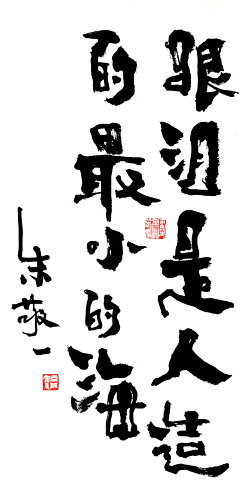 眼泪是人造
的最小的海
朱敬一